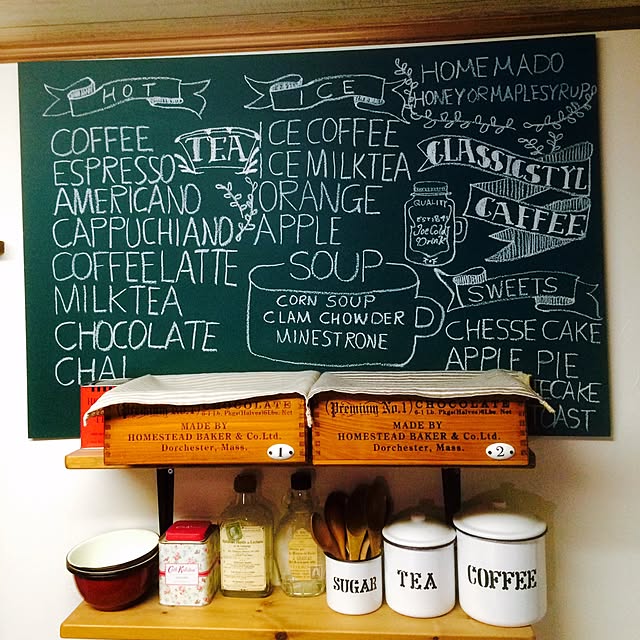 HOT
COFFEE
ESPRESSO
AMERICANO
CAPPUCHIANO
COFFEELATTE
MILKTEA
CHOCOLATE
CHAI
TEA
ICE
ICE COFFEE
ICE MILKTEA
ORANGE
APPLE
SOUP
CORN SOUP
CLAM CHOWDER
MINESTRONE
HOMEMADO
HONEY OR MAPLESYRUP
CLASSICSTYL
CAFFEE
QUALITY
Est 1841
Ice Cold
Drink
SWEETS
CHESSE CAKE
APPLE PIE
ECAKE
OAST
CHOCOLATE
(Premium No.1)
MADE BY
HOMESTEAD BAKER & Co.Ltd.
Dorchester, Mass.
1
CHOCOLATE
(Premium No.1)
6-1 Lb. Pkgs(Halves)6Lbs. Net
MADE BY
HOMESTEAD BAKER & Co.Ltd.
Dorchester, Mass.
2
Cath Kidston
SUGAR
TEA
COFFEE